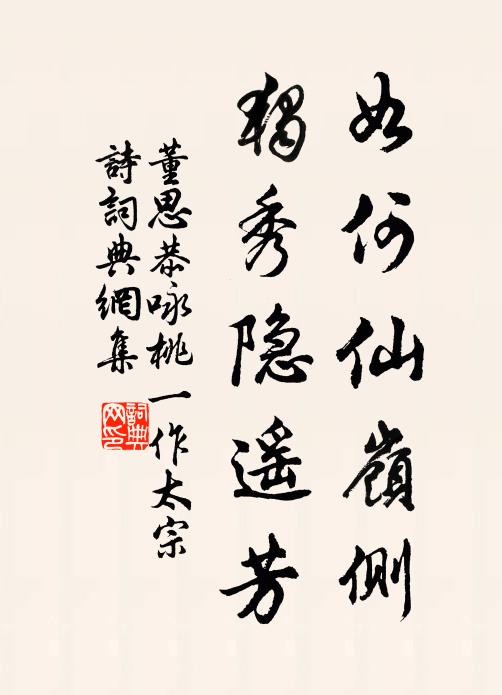 如何仙嶺側
獨秀隐遥芳
董思恭咏桃一作太宗
詩詞典網集
詞典网印